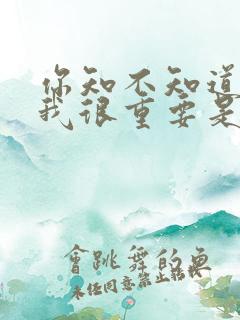 你知不知道
我很重要是
會跳舞的魚
未经同意禁止转载